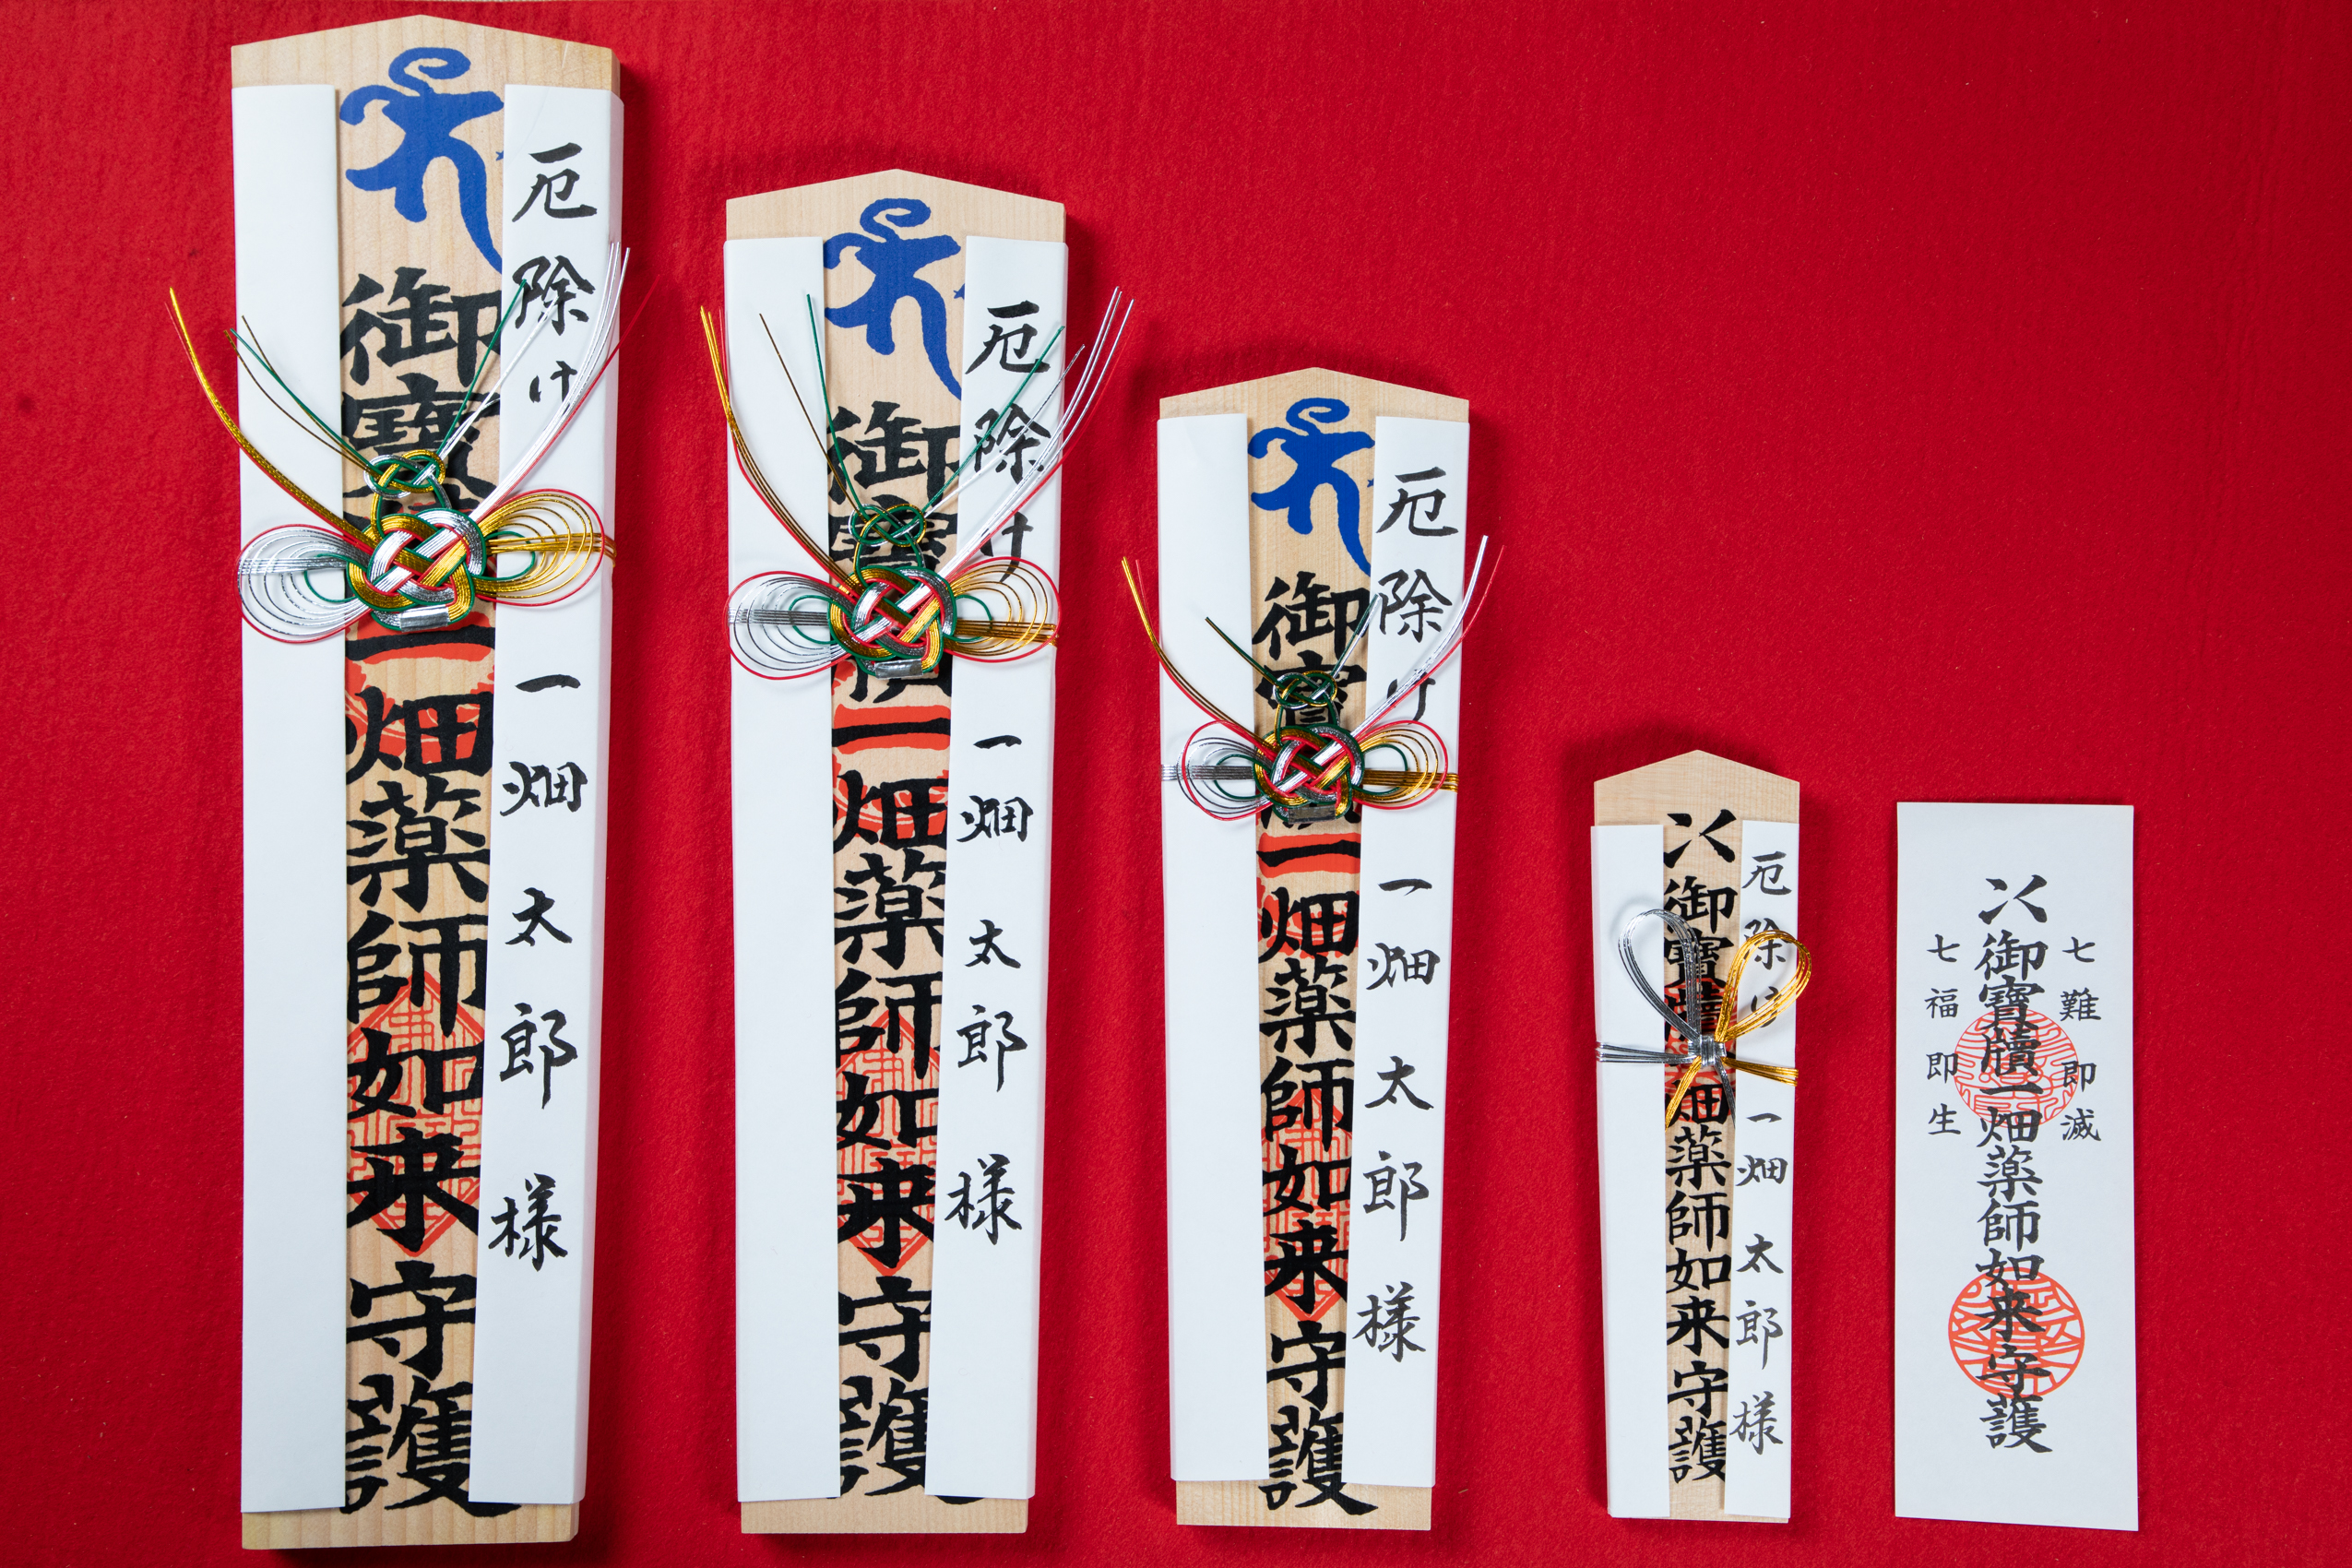 厄除け 一畑太郎様
御寶 一畑薬師如来守護
厄除け 一畑太郎様
御寶 一畑薬師如来守護
厄除け 一畑太郎様
御寶 一畑薬師如来守護
厄除け 一畑太郎様
御寶牘 畑薬師如来守護
七難即滅
御寶牘一畑薬師如来守護
七福即生